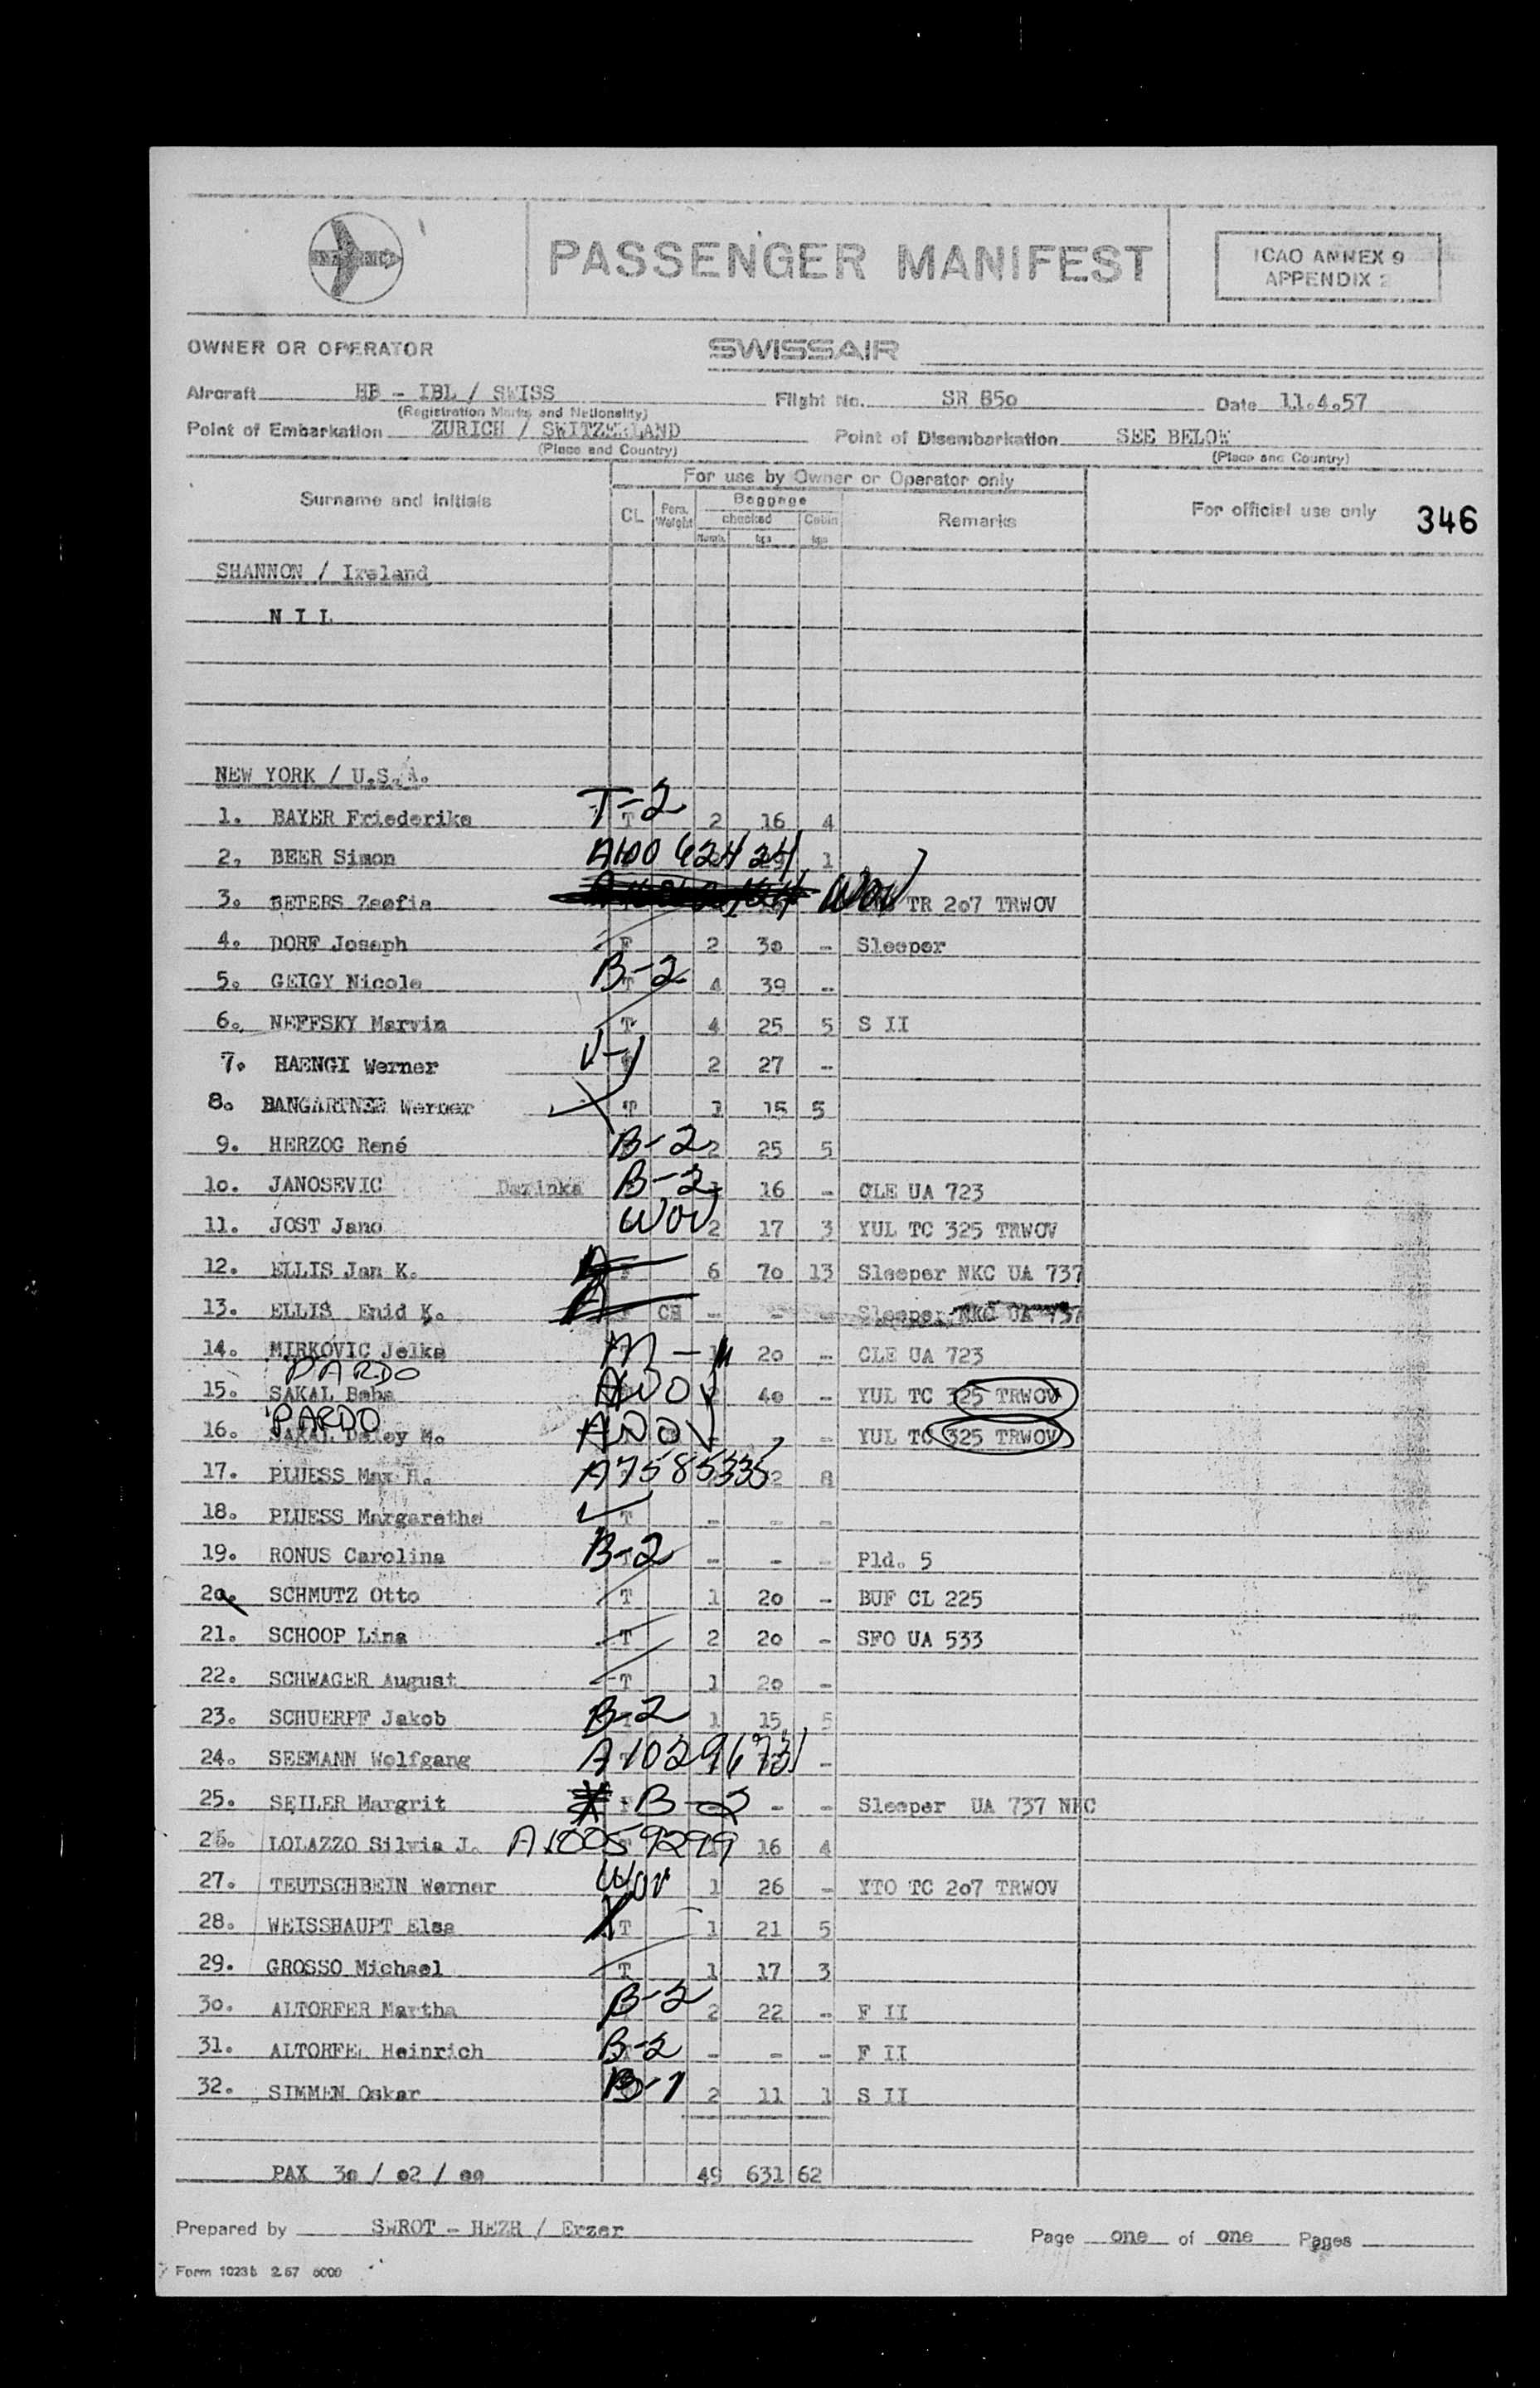 SWISSAIR
PASSENGER MANIFEST
ICAO ANNEX 9
APPENDIX 2
OWNER OR OPERATOR SWISSAIR
Aircraft HB - IBL / SWISS Flight No. SR 850 Date 11.4.57
(Registration Marks and Nationality)
Point of Embarkation ZURICH / SWITZERLAND Point of Disembarkation SEE BELOW
(Place and Country) (Place and Country)
For use by Owner or Operator only
Surname and initials CL Pers. Weight Baggage checked Numb. kgs Cabin kgs Remarks For official use only 346
SHANNON / Ireland
N I L
NEW YORK / U.S.A.
1. BAYER Friederike T-2 T 2 16 4
2. BEER Simon 1
3. Zsofia WOV TR 2o7 TRWOV
4. DORF Joseph F 2 3o - Sleeper
5. GEIGY Nicole B-2 T 4 39 -
6. NEFFSKY Marvin T 4 25 5 S II
7. HAENGI Werner 2 27 -
8. BANGARTNER Werner T 1 15 5
9. HERZOG René B-2 2 25 5
1o. JANOSEVIC Dazinka B-2 16 - CLE UA 723
11. JOST Jano WOV 2 17 3 YUL TC 325 TRWOV
12. ELLIS Jan K. F 6 7o 13 Sleeper NKC UA 737
13. ELLIS Enid K. CH - - - Sleeper NKC UA 737
14. MIRKOVIC Jelka 2o - CLE UA 723
PARDO
15. SAKAL Beba 4o - YUL TC 325 TRWOV
PARDO
16. SAKAL M. - - YUL TC 325 TRWOV
17. PLUESS Max H. A7585335 2 8
18. PLUESS Margaretha T - - -
19. RONUS Carolina B-2 T - - - Pld. 5
2o. SCHMUTZ Otto T 1 2o - BUF CL 225
21. SCHOOP Lina T 2 2o - SFO UA 533
22. SCHWAGER August T 1 2o -
23. SCHUERPF Jakob B-2 1 15 5
24. SEEMANN Wolfgang A10296731 -
25. SEILER Margrit F B-2 - - Sleeper UA 737 NKC
26. LOLAZZO Silvia J. A10059299 16 4
27. TEUTSCHBEIN Werner WOV 1 26 - YTO TC 2o7 TRWOV
28. WEISSHAUPT Elsa T 1 21 5
29. GROSSO Michael T 1 17 3
3o. ALTORFER Martha B-2 2 22 - F II
31. ALTORFE Heinrich B-2 - - - F II
32. SIMMEN Oskar B-1 2 11 1 S II
PAX 3o / o2 / oo 49 631 62
Prepared by SWROT - HEZH / Erzer Page one of one Pages
Form 1023b 2.57 5000